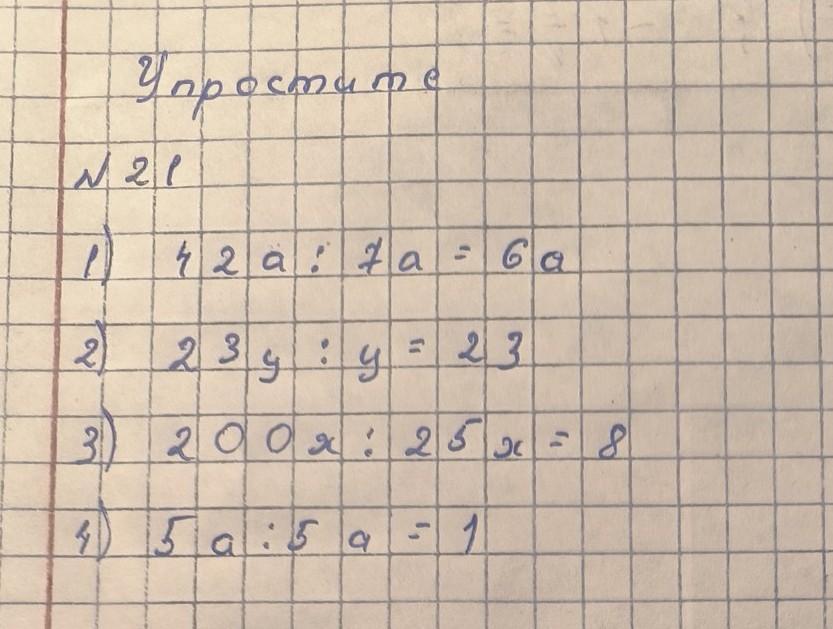 Упростите
№ 21
1) 42a : 7a = 6a
2) 23y : y = 23
3) 200x : 25x = 8
4) 5a : 5a = 1